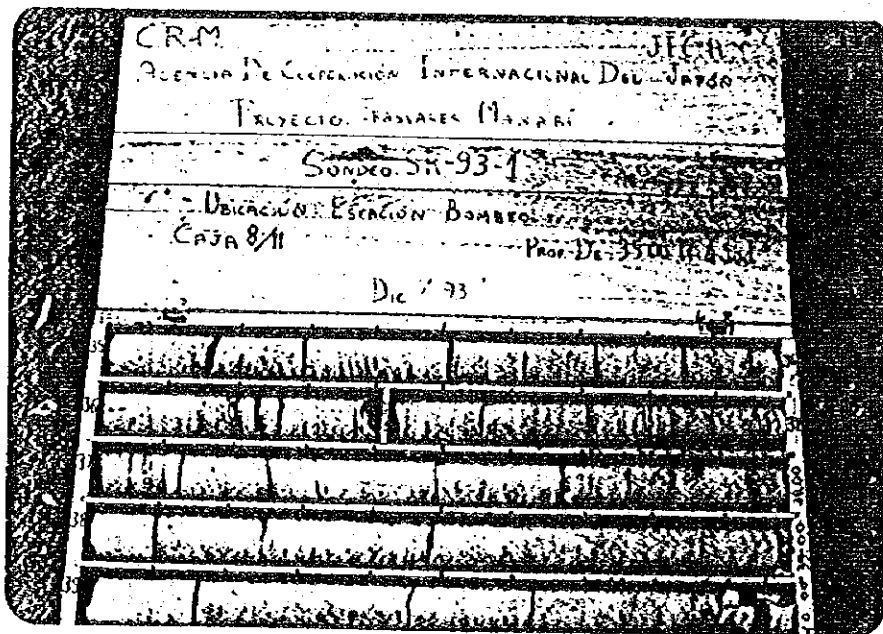 C.R.M. JICA
AGENCIA DE COOPERACIÓN INTERNACIONAL DEL JAPÓN
PROYECTO TRASVASES MANABÍ
SONDEO SM-93-1
UBICACIÓN: ESTACIÓN BOMBEO
CAJA 8/11 PROF. DE 35.00
DIC / 93
35
36
37
38
39